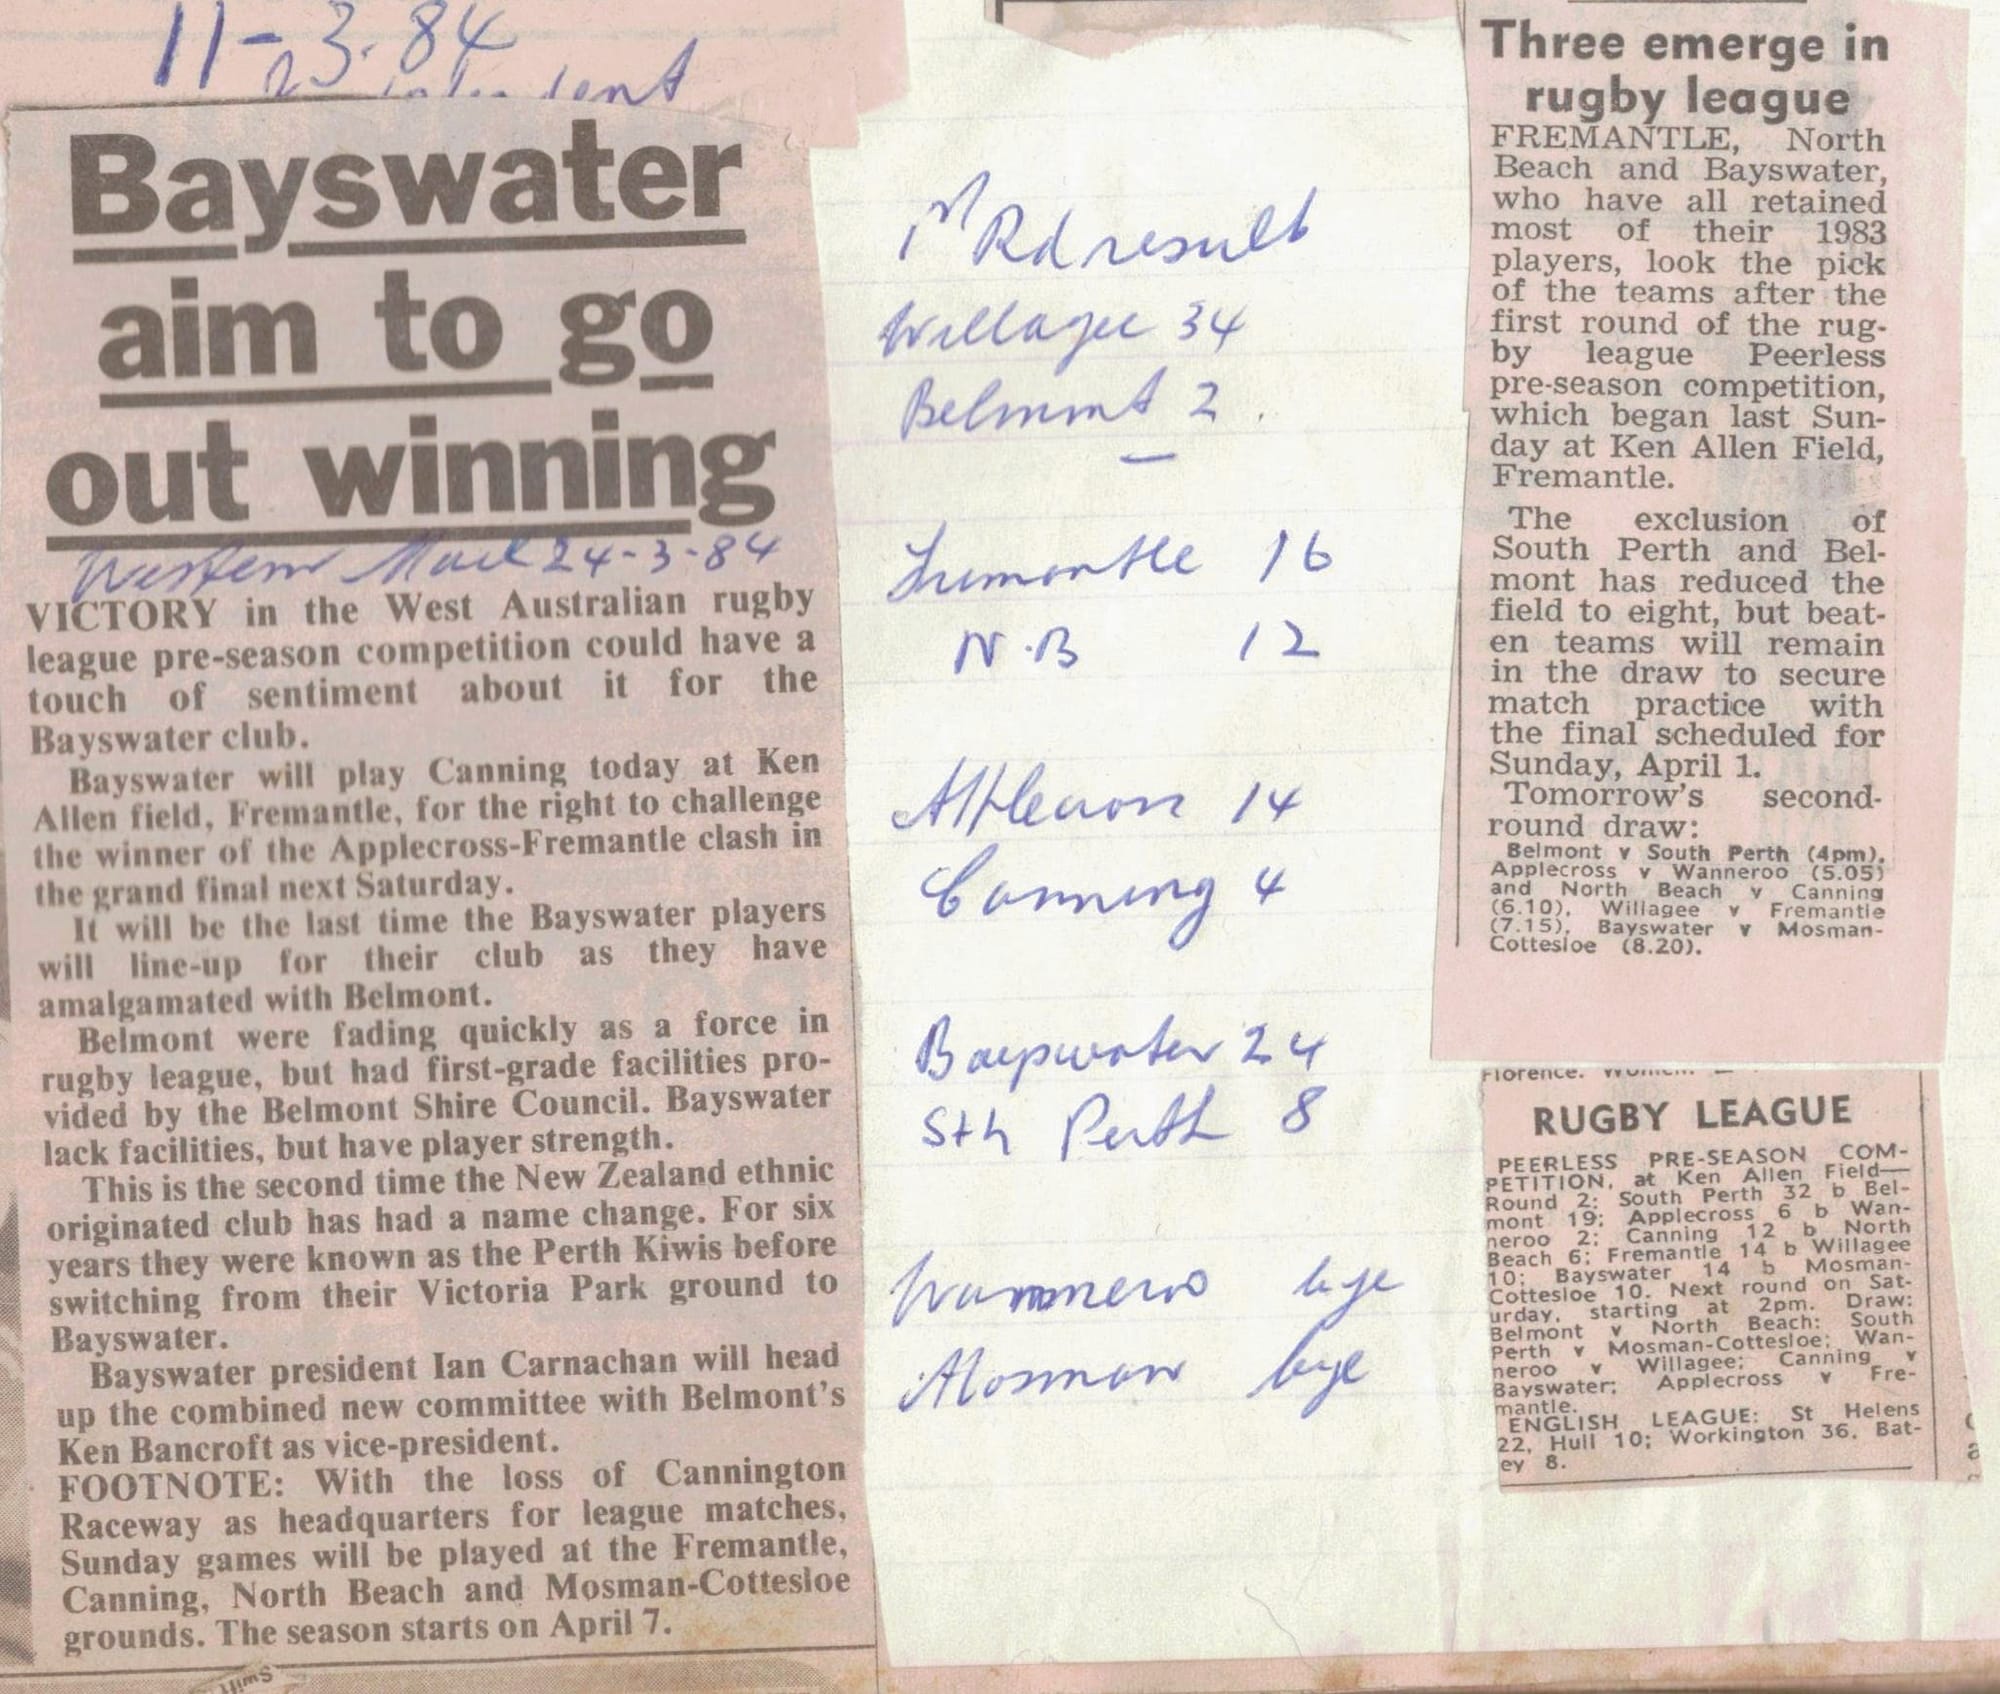 11-3.84
Bayswater
aim to go
out winning
Western Mail 24-3-84
VICTORY in the West Australian rugby
league pre-season competition could have a
touch of sentiment about it for the
Bayswater club.
Bayswater will play Canning today at Ken
Allen field, Fremantle, for the right to challenge
the winner of the Applecross-Fremantle clash in
the grand final next Saturday.
It will be the last time the Bayswater players
will line-up for their club as they have
amalgamated with Belmont.
Belmont were fading quickly as a force in
rugby league, but had first-grade facilities pro-
vided by the Belmont Shire Council. Bayswater
lack facilities, but have player strength.
This is the second time the New Zealand ethnic
originated club has had a name change. For six
years they were known as the Perth Kiwis before
switching from their Victoria Park ground to
Bayswater.
Bayswater president Ian Carnachan will head
up the combined new committee with Belmont's
Ken Bancroft as vice-president.
FOOTNOTE: With the loss of Cannington
Raceway as headquarters for league matches,
Sunday games will be played at the Fremantle,
Canning, North Beach and Mosman-Cottesloe
grounds. The season starts on April 7.
Rd result
Willagee 34
Belmont 2
Fremantle 16
N.B 12
Applecross 14
Canning 4
Bayswater 24
Sth Perth 8
Wanneroo bye
Mosman bye
Three emerge in
rugby league
FREMANTLE, North
Beach and Bayswater,
who have all retained
most of their 1983
players, look the pick
of the teams after the
first round of the rug-
by league Peerless
pre-season competition,
which began last Sun-
day at Ken Allen Field,
Fremantle.
The exclusion of
South Perth and Bel-
mont has reduced the
field to eight, but beat-
en teams will remain
in the draw to secure
match practice with
the final scheduled for
Sunday, April 1.
Tomorrow's second-
round draw:
Belmont v South Perth (4pm),
Applecross v Wanneroo (5.05)
and North Beach v Canning
(6.10), Willagee v Fremantle
(7.15), Bayswater v Mosman-
Cottesloe (8.20).
Florence.
RUGBY LEAGUE
PEERLESS PRE-SEASON COM-
PETITION, at Ken Allen Field—
Round 2: South Perth 32 b Bel-
mont 19; Applecross 6 b Wan-
neroo 2; Canning 12 b North
Beach 6; Fremantle 14 b Willagee
10; Bayswater 14 b Mosman-
Cottesloe 10. Next round on Sat-
urday, starting at 2pm. Draw:
Belmont v North Beach; South
Perth v Mosman-Cottesloe; Wan-
neroo v Willagee; Canning v
Bayswater; Applecross v Fre-
mantle.
ENGLISH LEAGUE: St Helens
22, Hull 10; Workington 36, Bat-
ey 8.